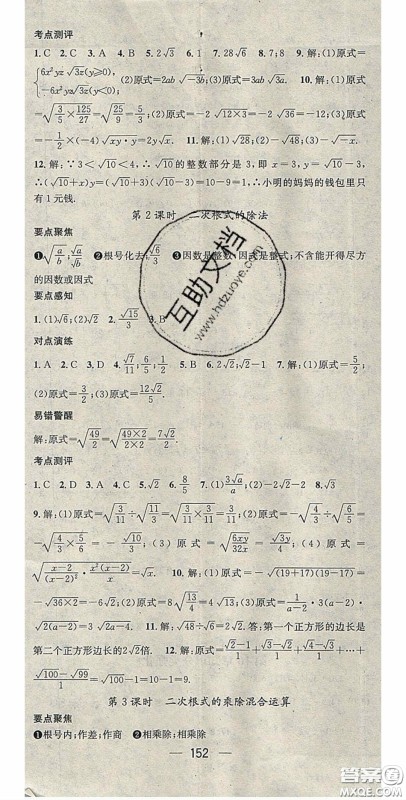 考点测评
1. C 2. C 3. A 4. B 5. 2√3 6. 1 7. 28√6 8. > 9. 解:(1)原式=
{6x²yz√3z(y≥0), -6x²yz√3z(y<0); (2)原式=2ab√-3b;(3)原式=4ab√3a. 10. 解:(1)原式
=√(3/5×125/27)=√(25/9)=5/3;(2)原式=-2√(12×3)=-2√36=-12;(3)原式=
-1/2×(-4)√(xy·y)=2y√x. 11. 解:(1)√28;(2)-√48;(3)-√-x.
12. 解:∵3<√10<4,∴√10的整数部分是3,即x=3,y=√10-3,
∴(√10+x)y=(√10+3)(√10-3)=10-9=1,∴小明的妈妈的钱包里只
有1元钱.
第2课时 二次根式的除法
要点聚焦
❶√(a/b);√a/√b ❷根号化去;√6/3 ❸因数是整数,因式是整式;不含能开得尽方
的因数或因式
要点感知
1. (1)√6;(2)-√2 2. √15/3 3. D
对点演练
1. A 2. C 3. D 4. √7/11;√6/5;1/2 5. A 6. B 7. 2√2;√2-1 8. 解:(1)√5/4;
(2)原式=3/2;(3)原式=12√2/5.
易错警醒
解:原式=√(49/2)=√(49×2/2×2)=7√2/2.
考点测评
1. C 2. A 3. D 4. C 5. √2 6. 8/5 7. (1)3√a/a;(2)-2-2√2 8. √3/3
9. 解:(1)原式=√(3/11÷3/11)=√(3/11×11/3)=√1=1;(2)原式=-√(4/3÷8/5)=
-√(4/3×5/8)=-√30/6;(3)原式=√(6xy/32x)=√3y/4;(4)原式=
√(x/(x-2)²·x²(x-2)/x)=√(x²/(x-2))=x√(x-2)/(x-2). 10. 解:(1)原式=-√((19+17)(19-17))=
-√(36×2)=-6√2;(2)原式=2a√(2(a-2)). (3)原式=1/(a-2)·
√(2(a-2))=√(2(a-2))/(a-2). 11. 解:√48÷√6=√8=2√2. 答:第一个正方形的边长是
第二个正方形边长的2√2倍. 12. 解:原式=(√2-√1)/1+(√3-√2)/1+…+
(√100-√99)/1=√100-1=9.
第3课时 二次根式的乘除混合运算
要点聚焦
❶根号内;作差;作商 ❷相乘除;相乘除
152
互助文档
www.hdzuoye.com
答案圈
MXQE.COM